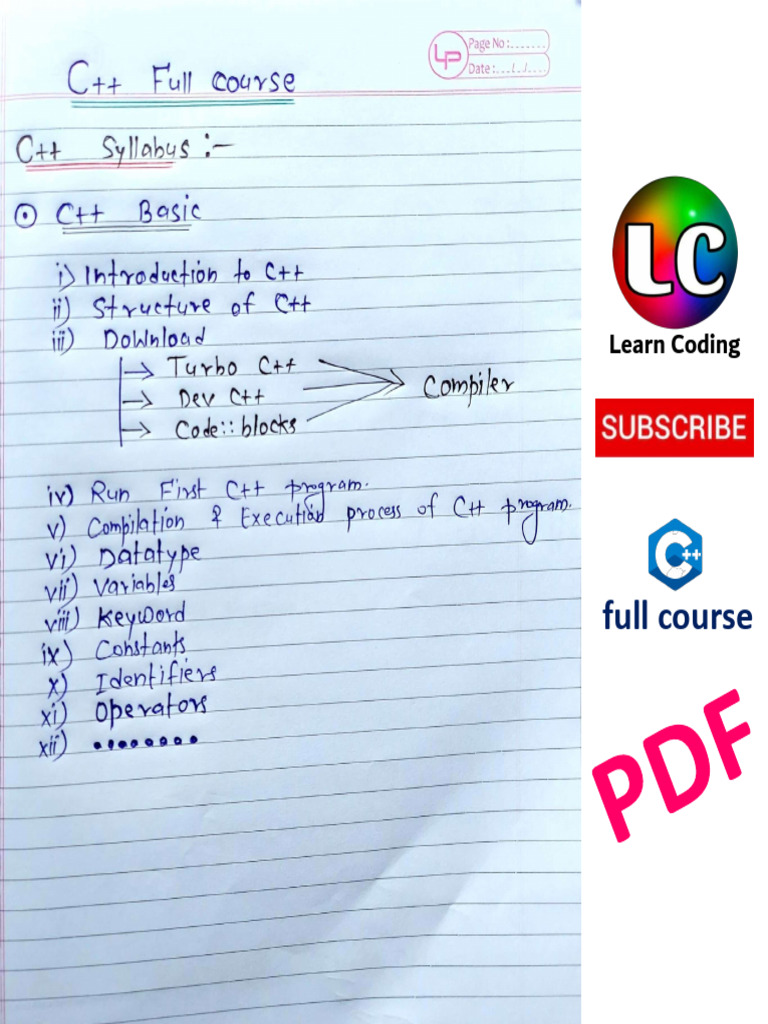 LP
Page No :.......
Date : .../../....
C++ Full course
C++ Syllabus :-
C++ Basic
i) Introduction to C++
ii) Structure of C++
iii) Download
→ Turbo C++
→ Dev C++
→ Code::blocks
Compiler
iv) Run First C++ program.
v) Compilation & Execution process of C++ program.
vi) Datatype
vii) Variables
viii) Keyword
ix) Constants
x) Identifiers
xi) Operators
xii) ........
LC
Learn Coding
SUBSCRIBE
C++
full course
PDF